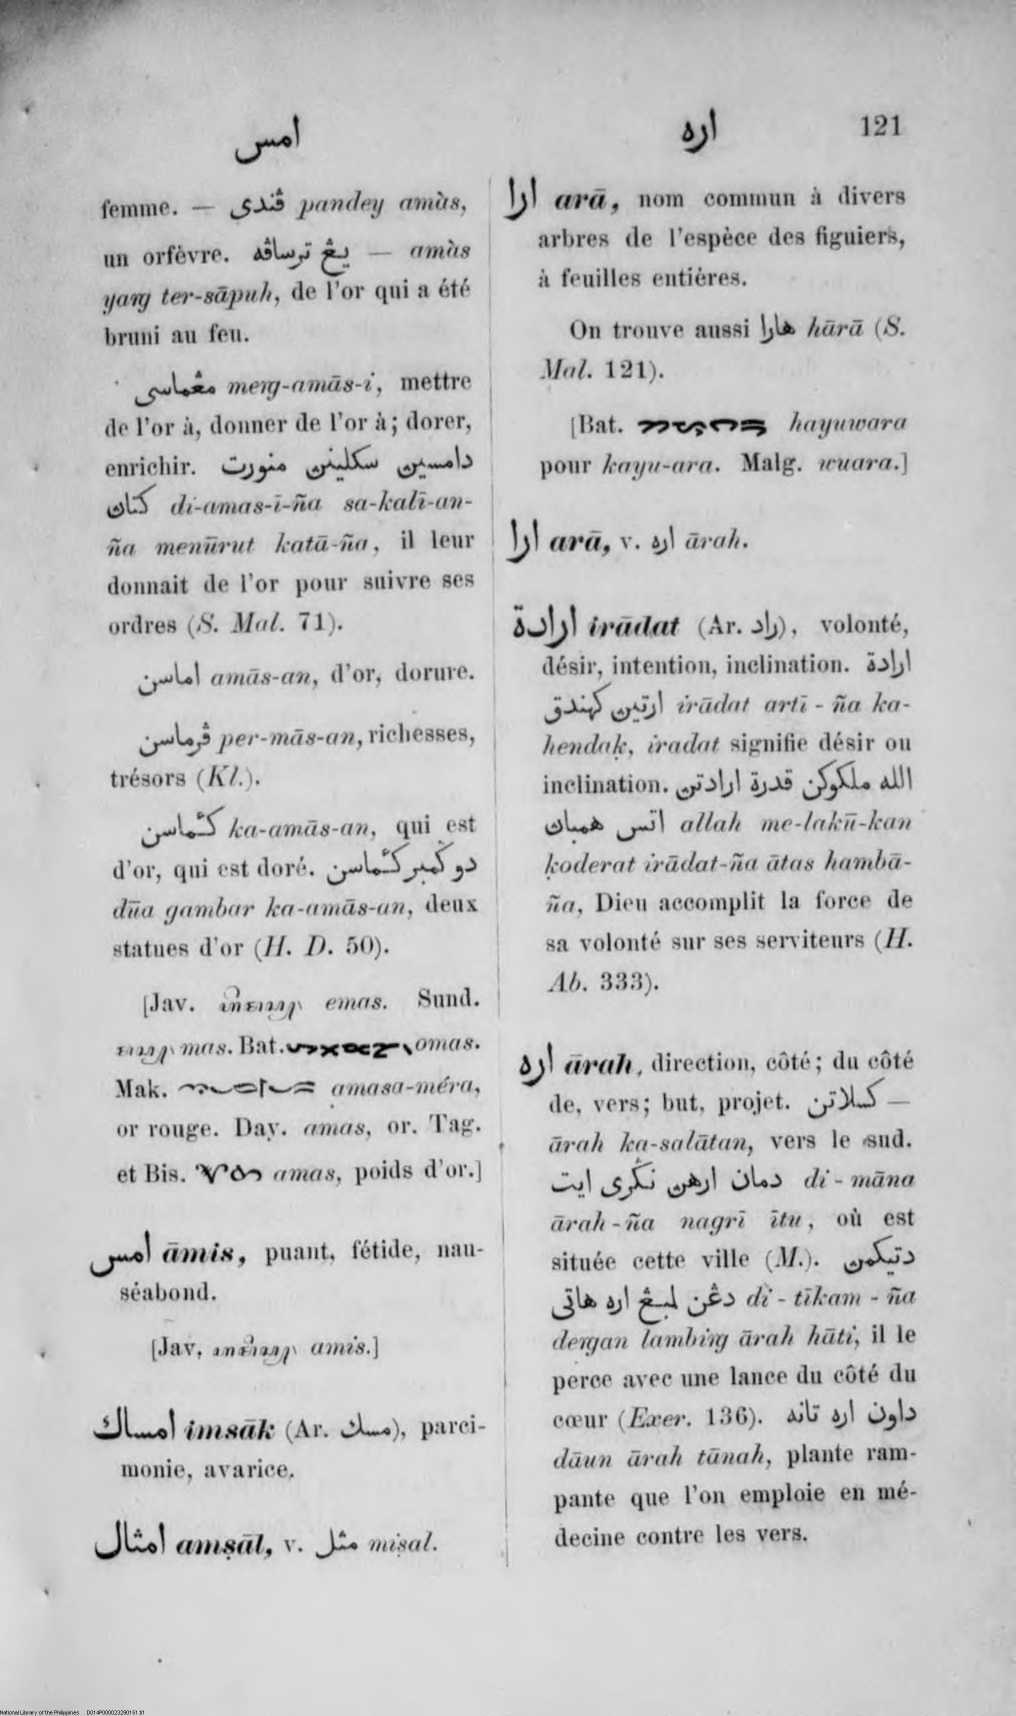 امس
اره 121
femme. — ڤندي pandey amàs,
un orfèvre. يڠ ترساڤه — amàs
yaṅg ter-sāpuh, de l'or qui a été
bruni au feu.
مڠماسي meṅg-amās-i, mettre
de l'or à, donner de l'or à; dorer,
enrichir. دامسين سكلينن منورت
كتان di-amas-ī-ña sa-kalī-an-
ña menūrut katā-ña, il leur
donnait de l'or pour suivre ses
ordres (S. Mal. 71).
اماسن amās-an, d'or, dorure.
ڤرماسن per-mās-an, richesses,
trésors (Kl.).
كئماسن ka-amās-an, qui est
d'or, qui est doré. دو گمبر كئماسن
dūa gambar ka-amās-an, deux
statues d'or (H. D. 50).
[Jav. emas. Sund.
mas. Bat. omas.
Mak. amasa-méra,
or rouge. Day. amas, or. Tag.
et Bis. amas, poids d'or.]
امس āmis, puant, fétide, nau-
séabond.
[Jav. amis.]
امساك imsāk (Ar. مسك), parci-
monie, avarice.
امثال amṣāl, v. مثل miṣal.
ارا arā, nom commun à divers
arbres de l'espèce des figuiers,
à feuilles entières.
On trouve aussi هارا hārā (S.
Mal. 121).
[Bat. hayuwara
pour kayu-ara. Malg. wuara.]
ارا arā, v. اره ārah.
ارادة irādat (Ar. راد), volonté,
désir, intention, inclination. ارادة
ارتين كهندق irādat artī-ña ka-
hendaḳ, iradat signifie désir ou
inclination. الله ملكوكن قدرة ارادتن
اتس همبان allah me-lakū-kan
ḳoderat irādat-ña ātas hambā-
ña, Dieu accomplit la force de
sa volonté sur ses serviteurs (H.
Ab. 333).
اره ārah, direction, côté; du côté
de, vers; but, projet. كسلاتن —
ārah ka-salātan, vers le sud.
دمان ارهن نگري ايت di-māna
ārah-ña nagrī ītu, où est
située cette ville (M.). دتيكمن
دڠن لمبيڠ اره هاتي di-tīkam-ña
deṅgan lambiṅg ārah hāti, il le
perce avec une lance du côté du
cœur (Exer. 136). داون اره تانه
dāun ārah tānah, plante ram-
pante que l'on emploie en mé-
decine contre les vers.
National Library of the Philippines